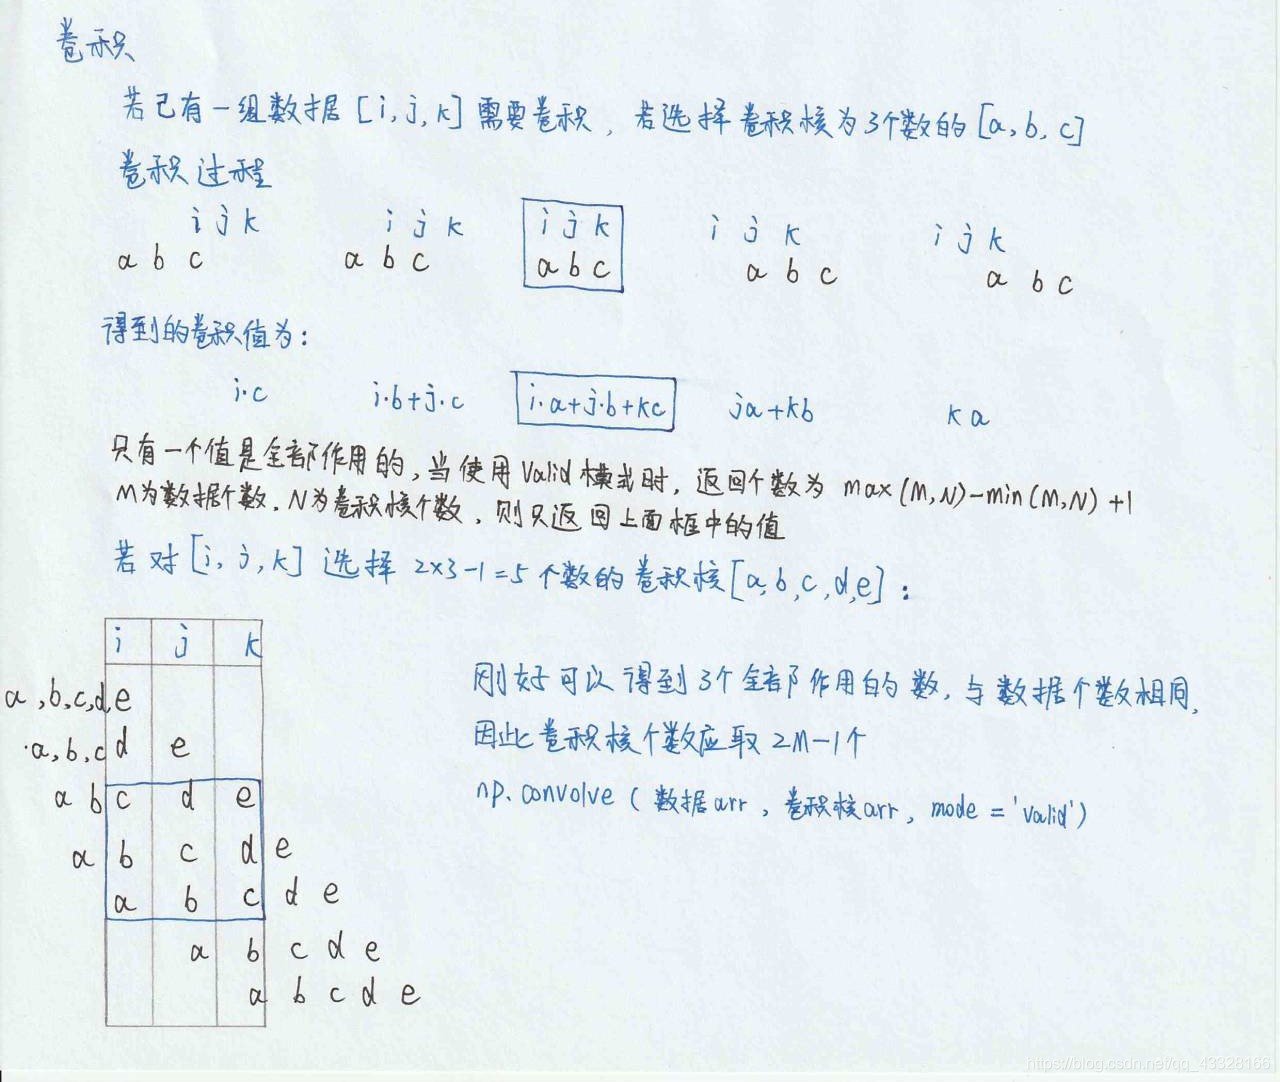 卷积
若已有一组数据 [i, j, k] 需要卷积, 若选择卷积核为3个数的 [a, b, c]
卷积过程
i j k    i j k    i j k    i j k    i j k
a b c    a b c    a b c    a b c    a b c
得到的卷积值为:
i·c    i·b+j·c    i·a+j·b+kc    ja+kb    ka
只有一个值是全部作用的, 当使用Valid模式时, 返回个数为 max(M,N)-min(M,N)+1
M为数据个数, N为卷积核个数, 则只返回上面框中的值
若对 [i, j, k] 选择 2×3-1=5 个数的卷积核 [a, b, c, d, e] :
i j k
a,b,c,d,e
·a,b,c d e
a b c d e
a b c d e
a b c d e
a b c d e
a b c d e
刚好可以得到3个全部作用的数, 与数据个数相同,
因此卷积核个数应取 2M-1个
np.convolve (数据arr, 卷积核arr, mode = 'valid')
https://blog.csdn.net/qq_43328166